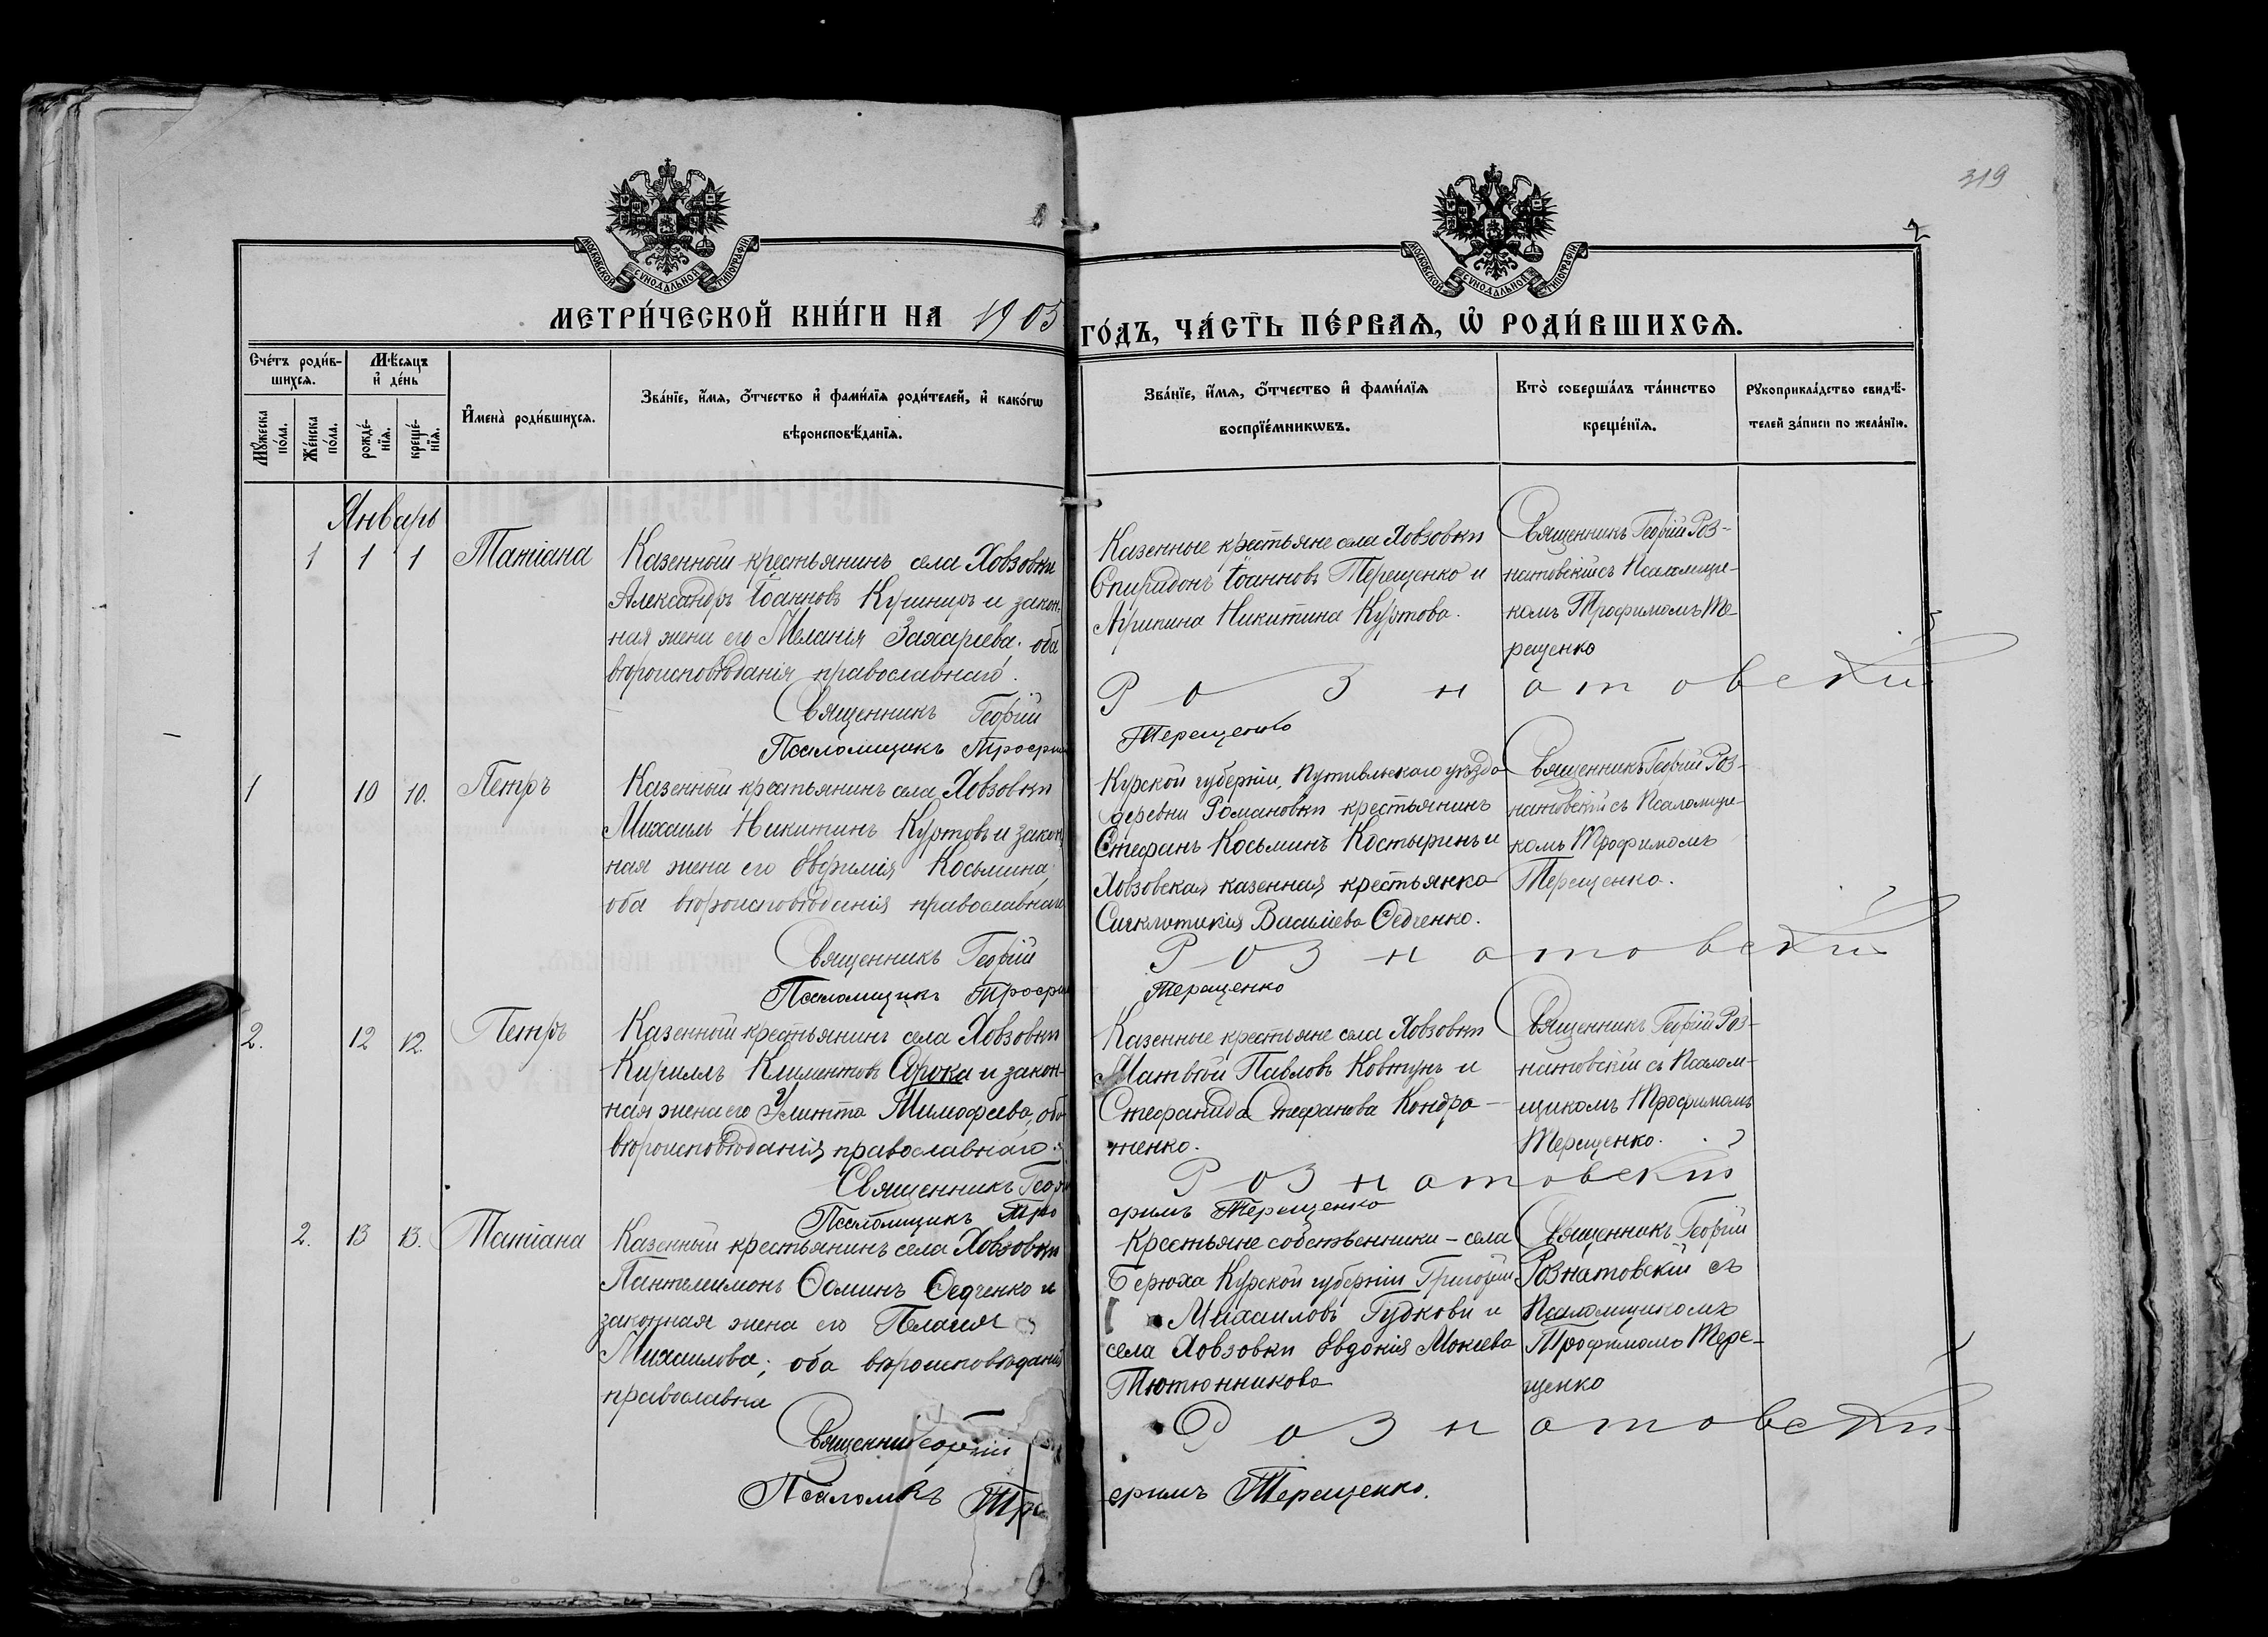 319
2
МОСКОВСКОЙ СУНОДАЛЬНОЙ ТИПОГРАФІИ
МОСКОВСКОЙ СУНОДАЛЬНОЙ ТИПОГРАФІИ
МЕТРИ́ЧЕСКОЙ КНИ́ГИ НА 1905
ГО́ДЪ, ЧА́СТЬ ПЕ́РВАѦ, Ѡ РОДИ́ВШИХСѦ.
Сче́тъ роди́в-
шихсѧ.
Мѣ́сѧцъ
и де́нь
Мꙋ́жеска
по́ла.
Же́нска
по́ла.
рожде́-
нїѧ.
креще́-
нїѧ.
Имена̀ роди́вшихсѧ.
Зва́нїе, и́мѧ, о́тчество и фами́лїѧ роди́телей, и како́гѡ
вѣроисповѣ́данїѧ.
Зва́нїе, и́мѧ, о́тчество и фами́лїѧ
воспрїе́мникѡвъ.
Кто̀ соверша́лъ та́инство
креще́нїѧ.
Рꙋкоприкла́дство свидѣ́-
телей за́писи по жела́нїю.
Январь
1 1 1 Татіана
Казенный крестьянинъ села Ховзовки
Александръ Іоанновъ Кушниръ и закон-
ная жена его Меланія Захаріева. оба
вѣроисповѣданія православнаго.
Священникъ Георгій
Псаломщикъ Трофим
Казенные крестьяне села Ховзовки
Спиридонъ Іоанновъ Терещенко и
Агрипина Никитина Куртова.
Священникъ Георгій Роз-
натовскій съ Псаломщи-
комъ Трофимомъ Те-
рещенко
Рознатовскій
Терещенко
1 10 10. Петръ
Казенный крестьянинъ села Ховзовки
Михаилъ Никитинъ Куртовъ и закон
ная жена его Евфимія Косьмина,
оба вѣроисповѣданія православнаго
Священникъ Георгій
Псаломщикъ Трофим
Курской губерніи, Путивльскаго уѣзда
деревни Романовки крестьянинъ
Стефанъ Косьминъ Костыринъ и
Ховзовская казенная крестьянка
Сигклитикія Василіева Ѳедченко.
Священникъ Георгій Роз-
натовскій съ Псаломщи-
комъ Трофимомъ
Терещенко.
Рознатовскій
Терещенко
2. 12 12. Петръ
Казенный крестьянинъ села Ховзовки
Кириллъ Климентовъ Сорока и закон-
ная жена его Улитта Тимофеева, оба
вѣроисповѣданія православнаго.
Священникъ Георгі
Псаломщикъ Тро
Казенные крестьяне села Ховзовки
Матвѣй Павловъ Ковтунъ и
Стефанида Стефанова Кондра-
тенко.
Священникъ Георгій Роз-
натовскій съ Псалом-
щикомъ Трофимомъ
Терещенко.
Рознатовскій
фимъ Терещенко
2. 13 13. Татіана
Казенный крестьянинъ села Ховзовки
Пантелеимонъ Ѳоминъ Ѳедченко и
законная жена его Пелагея
Михаилова; оба вѣроисповѣданія
православна
Священни Георгій
Псаломкъ Тро
Крестьяне собственники - села
Берюха Курской губерніи Григорій
Михаиловъ Гудковъ и
села Ховзовки Евдокія Мокіева
Тютюнникова
Священникъ Георгій
Рознатовскій съ
Псаломщикомъ
Трофимомъ Тере-
щенко
Рознатовскій
фимъ Терещенко.